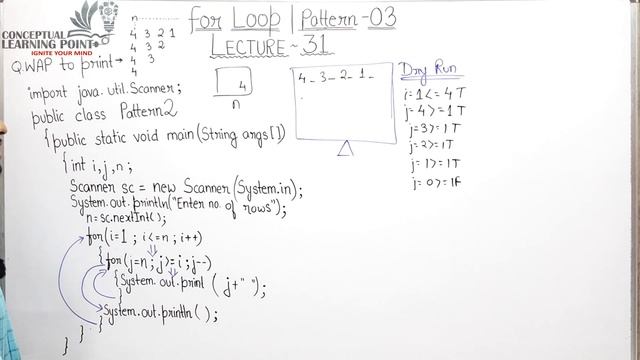 CONCEPTUAL
LEARNING POINT
IGNITE YOUR MIND
for Loop | Pattern-03
LECTURE-31
Q.WAP to print
n
4 3 2 1
4 3 2
4 3
4
import java.util.Scanner;
public class Pattern2
{public static void main(String args[])
{int i,j,n;
Scanner sc = new Scanner(System.in);
System.out.println("Enter no. of rows");
n=sc.nextInt();
for(i=1 ; i<=n ; i++)
{for(j=n ; j>=i ; j--)
{System.out.print ( j+" ");
}
System.out.println( );
}
}
}
4
n
4 - 3 - 2 - 1 -
Dry Run
i=1<=4 T
j=4>=1 T
j=3>=1 T
j=2>=1T
j=1>=1T
j=0>=1F